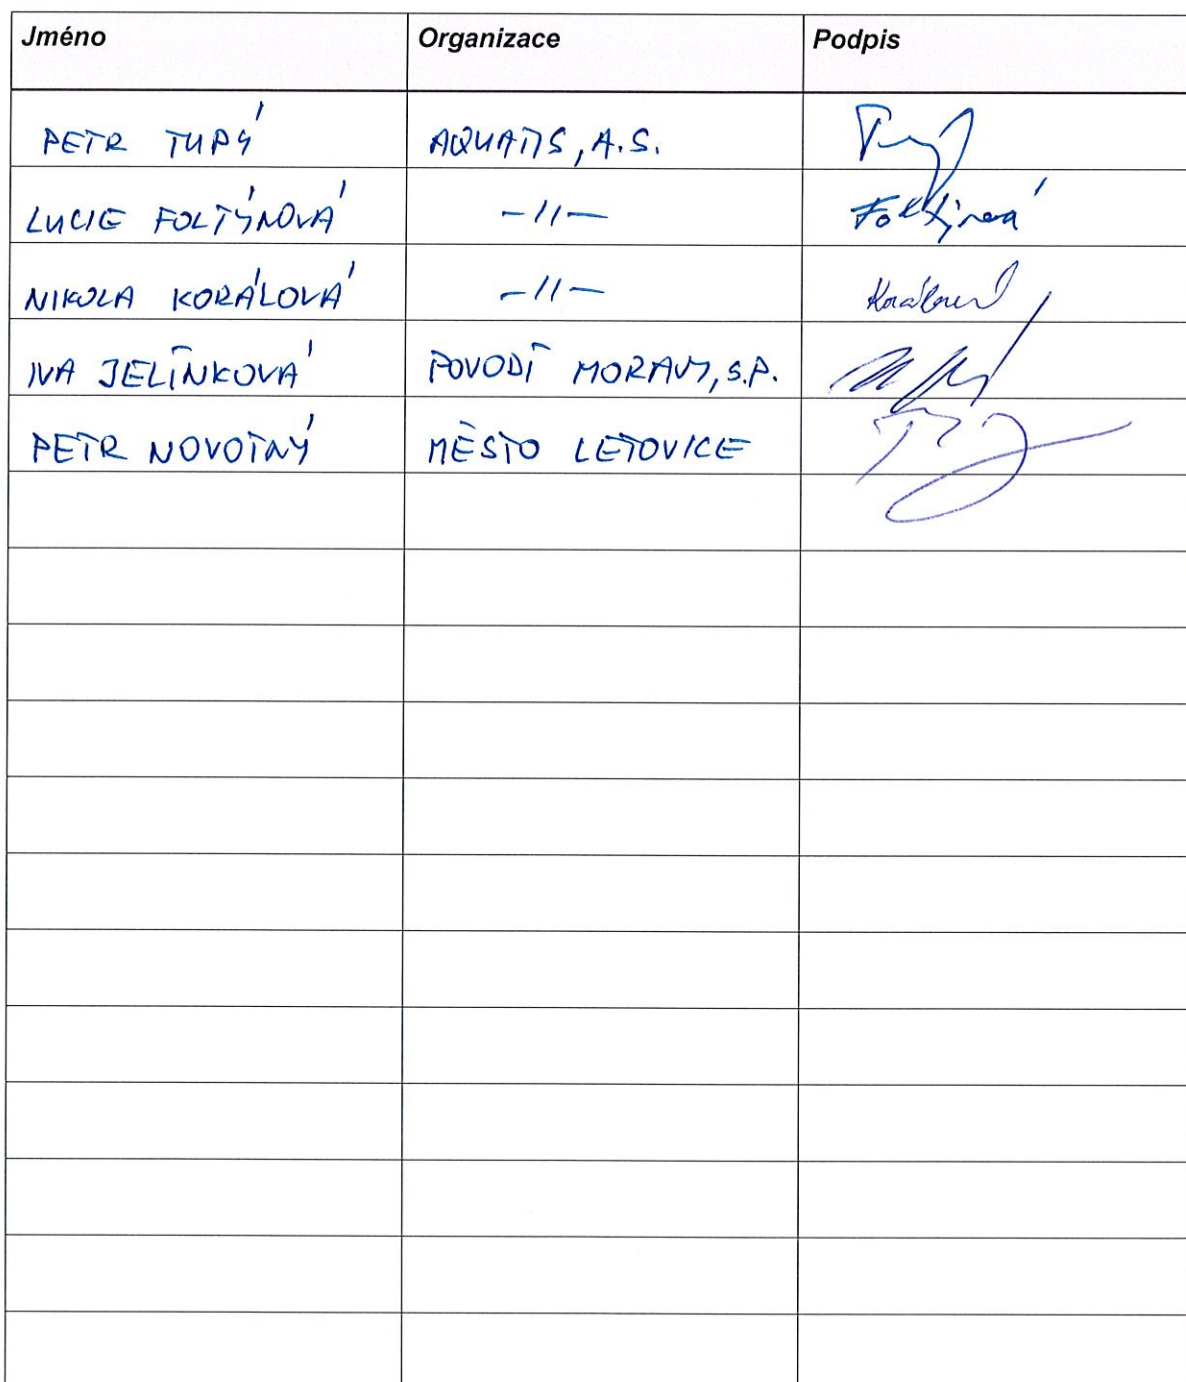 Jméno Organizace Podpis
PETR TUPÝ AQUATIS, A.S.
LUCIE FOLTÝNOVÁ -//- Foltýnová
NIKOLA KORÁLOVÁ -//- Korálová
IVA JELÍNKOVÁ POVODÍ MORAVY, S.P.
PETR NOVOTNÝ MĚSTO LETOVICE